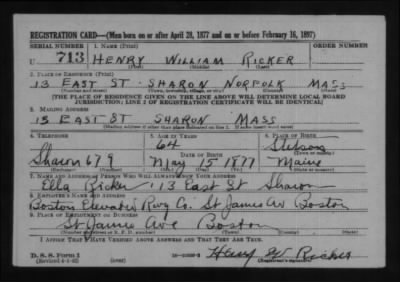 REGISTRATION CARD—(Men born on or after April 28, 1877 and on or before February 16, 1897)
SERIAL NUMBER 1. NAME (Print) ORDER NUMBER
U 713 HENRY WILLIAM RICKER
(First) (Middle) (Last)
2. PLACE OF RESIDENCE (Print)
13 EAST ST SHARON NORFOLK MASS
(Number and street) (Town, township, village, or city) (County) (State)
[THE PLACE OF RESIDENCE GIVEN ON THE LINE ABOVE WILL DETERMINE LOCAL BOARD
JURISDICTION; LINE 2 OF REGISTRATION CERTIFICATE WILL BE IDENTICAL]
3. MAILING ADDRESS
13 EAST ST SHARON MASS
[Mailing address if other than place indicated on line 2. If same insert word same]
4. TELEPHONE 5. AGE IN YEARS 6. PLACE OF BIRTH
64 Stetson
DATE OF BIRTH (Town or county)
Sharon 679 May 15 1877 Maine
(Exchange) (Number) (Mo.) (Day) (Yr.) (State or country)
7. NAME AND ADDRESS OF PERSON WHO WILL ALWAYS KNOW YOUR ADDRESS
Ella Ricker 13 East St Sharon
8. EMPLOYER'S NAME AND ADDRESS
Boston Elevated Rwy Co. St James Av Boston
9. PLACE OF EMPLOYMENT OR BUSINESS
St James Ave Boston
(Number and street or R. F. D. number) (Town) (County) (State)
I AFFIRM THAT I HAVE VERIFIED ABOVE ANSWERS AND THAT THEY ARE TRUE.
D. S. S. Form 1 Henry W Ricker
(Revised 4-1-42) (over) (Registrant's signature)